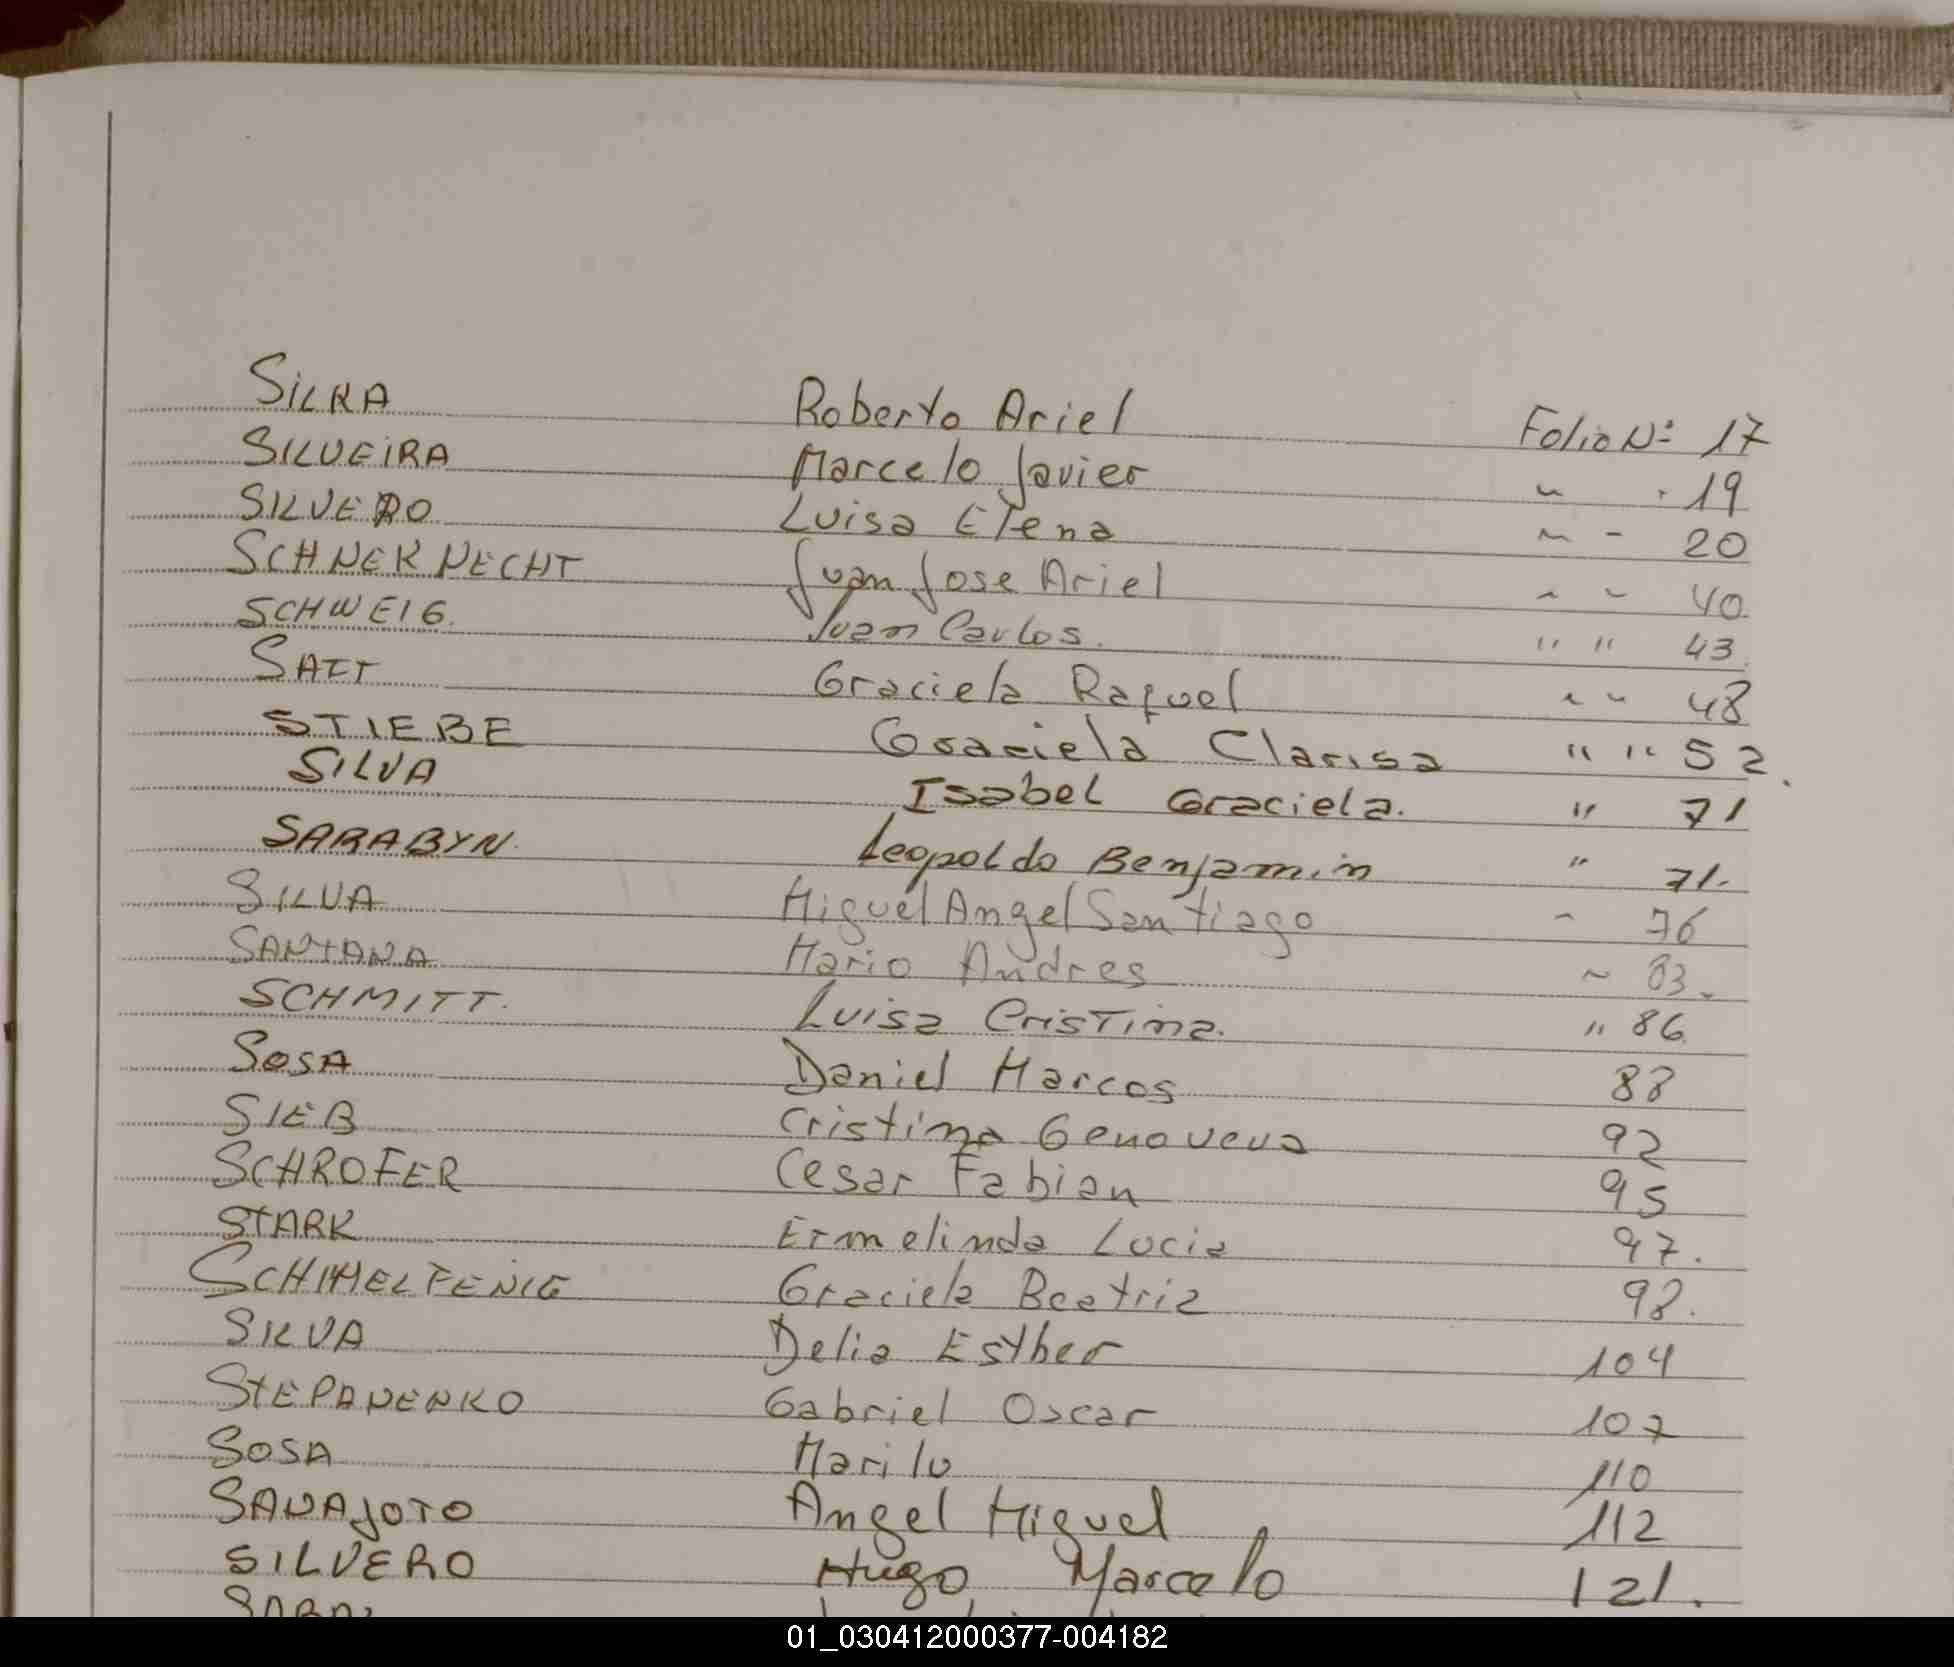 SILKA Roberto Ariel Folio Nº 17
SILVEIRA Marcelo Javier " " 19
SILVERO Luisa Elena " " 20
SCHNEKNECHT Juan Jose Ariel " " 40
SCHWEIG. Juan Carlos. " " 43
Graciela Raquel " " 48
STIEBE Graciela Clarisa " " 52.
SILVA Isabel Graciela. " 71
SARABYN. Leopoldo Benjamin " 71.
SILVA Miguel Angel Santiago " 76
SANTANA Mario Andres " 83.
SCHMITT. Luisa Cristina. " 86
SOSA Daniel Marcos 88
SIEB Cristina Genoveva 92
SCHROFER Cesar Fabian 95
STARK Ermelinda Lucia 97.
SCHIMELFENIG Graciela Beatriz 98.
SILVA Delia Esther 104
STEPANENKO Gabriel Oscar 107
SOSA Marilu 110
SAVAJOTO Angel Miguel 112
SILVERO Hugo Marcelo 121.
01_030412000377-004182